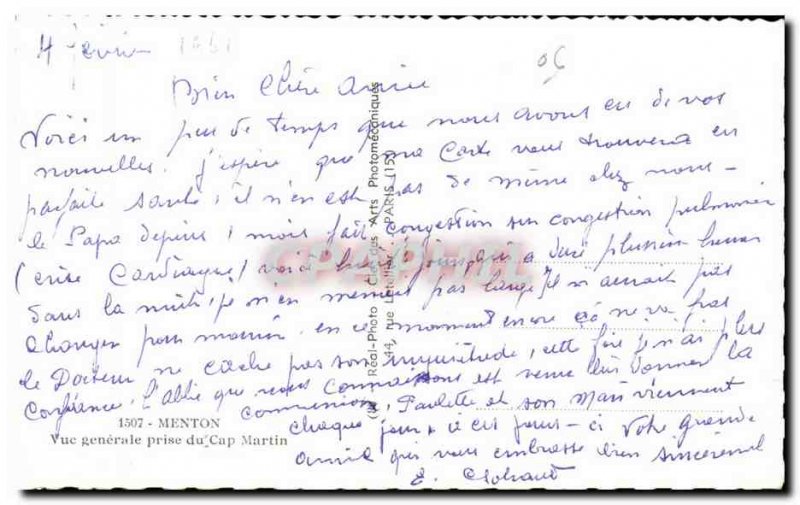 4 février 1961
06
Bien Chère Amie
Voici un peu de temps que nous avons eu de vos
nouvelles. j'espère que ma Carte vous trouvera en
parfaite santé, il n'en est pas de même chez nous -
le Papa depuis 1 mois fait congestion sur congestion pulmonaire
(crise Cardiaque) voici jours plusieurs heures
dans la nuit je n'en menait pas large il n'aurait pas
changer pour mourir. en ce moment encore ça ne va pas
le Docteur ne cache pas son inquiétude, cette fois je n'ai plus
Confiance. L'abbé que nous connaissons est venu lui donner la
communion, Paulette et son Mari viennent
chaque jour, ci votre grande
amie qui vous embrasse bien sincèrement
E.
1507 - MENTON
Vue generale prise du Cap Martin
Réal-Photo des Arts Photomécaniques
44, rue Letellier, PARIS (15)
CPAPHIL